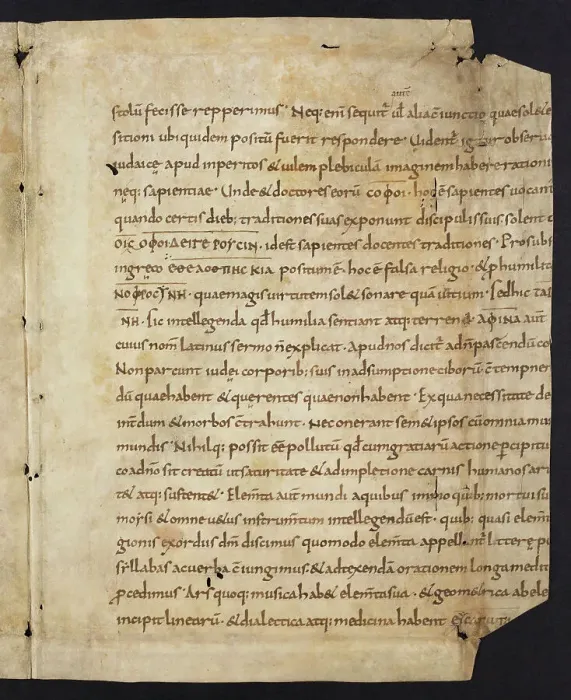 aut̄
stolū fecisse repperimus· Neq; eni sequit̄ ut̄ alia c̄iunctio quae sol&
sitioni ubi quidem positū fuerit respondere· Uident̄ igitur obser
iudaice apud imperitos & uilem plebiculā imaginem habere rationi
neq; sapientiae· Unde & doctores eorū CΟΦΟΙ· hoc ē sapientes uocan
quando certis dieb; traditiones suas exponunt discipulis suis solent
ΟΙC ΟΦΟΙ ΔΕΙΤΕ ΡΟΥCΙΝ· id est sapientes docentes traditiones· Pro sub
in greco ΕΘΕΛΟΘΠΗC ΚΙΑ positum ē· hoc ē falsa religio· & p humilit
ΝΟΦΡΟCΥΝΗ· quae magis uirtutem sol& sonare quā uitium· Sed hic ΤΑΠ
ΝΗ· Sic intellegenda qđ humilia sentiant atq; terrena· ΑΦΙΝΑ aut̄
cuius nom̄ latinus sermo n̄ explicat· Apud nos dicit̄ ad
Non parcunt iudei corporib; suis in adsumptione ciborū c̄temne
dū quae habent & querentes quae non habent· Ex qua necessitate de
int̄dum & morbos c̄trahunt· Nec onerant sem& ipsos cū omnia mun
mundis· Nihilq; possit eē pollutū qđ cum gratiarū actione pcipitu
co a dn̄o sit creatū ut saturitate & adimpletione carnis humanos ar
t& atq; sustent&· Elem̄ta aut̄ mundi a quibus immo quib; mortui su
moysi & omne u&us instrum̄tum intellegendū est· quib; quasi elem̄
gionis exordiis dm̄ discimus quomodo elem̄ta appellant̄ litterę
syllabas ac uerba c̄iungimus· & ad texendā orationem longa medit
pcedimus· Ars quoq; musica hab& elem̄ta sua· & geom&rica ab ele
incipit linearū· & dialectica atq; medicina habent